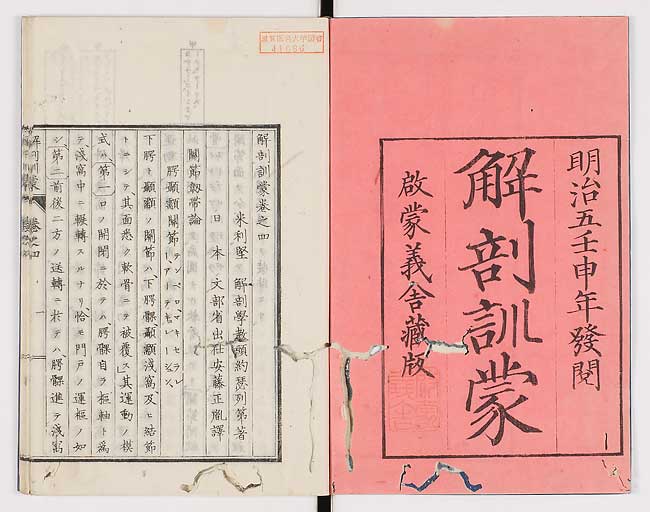 明治五壬申年發閲
解剖訓蒙
啟蒙義舍藏版
解剖訓蒙卷之四
米利堅 解剖學教頭約瑟列第著
日本 文部省出仕安藤正胤譯
關節靱帶論
腭顳顬關節
下腭ト顳顬ノ關節ハ下腭髁顳顬淺窩及ヒ結節
トニシテ其面悉ク軟骨ニテ被覆ス其運動ノ模
式ハ第一口ノ開閉ニ於テハ腭髁自ラ樞軸ト爲
テ淺窩中ニ輾轉スルナリ恰モ門戸ノ運樞ノ如
シ第二前後二方ノ送轉ニ於テハ腭髁進テ淺窩
解剖訓蒙 卷之四 一
41086